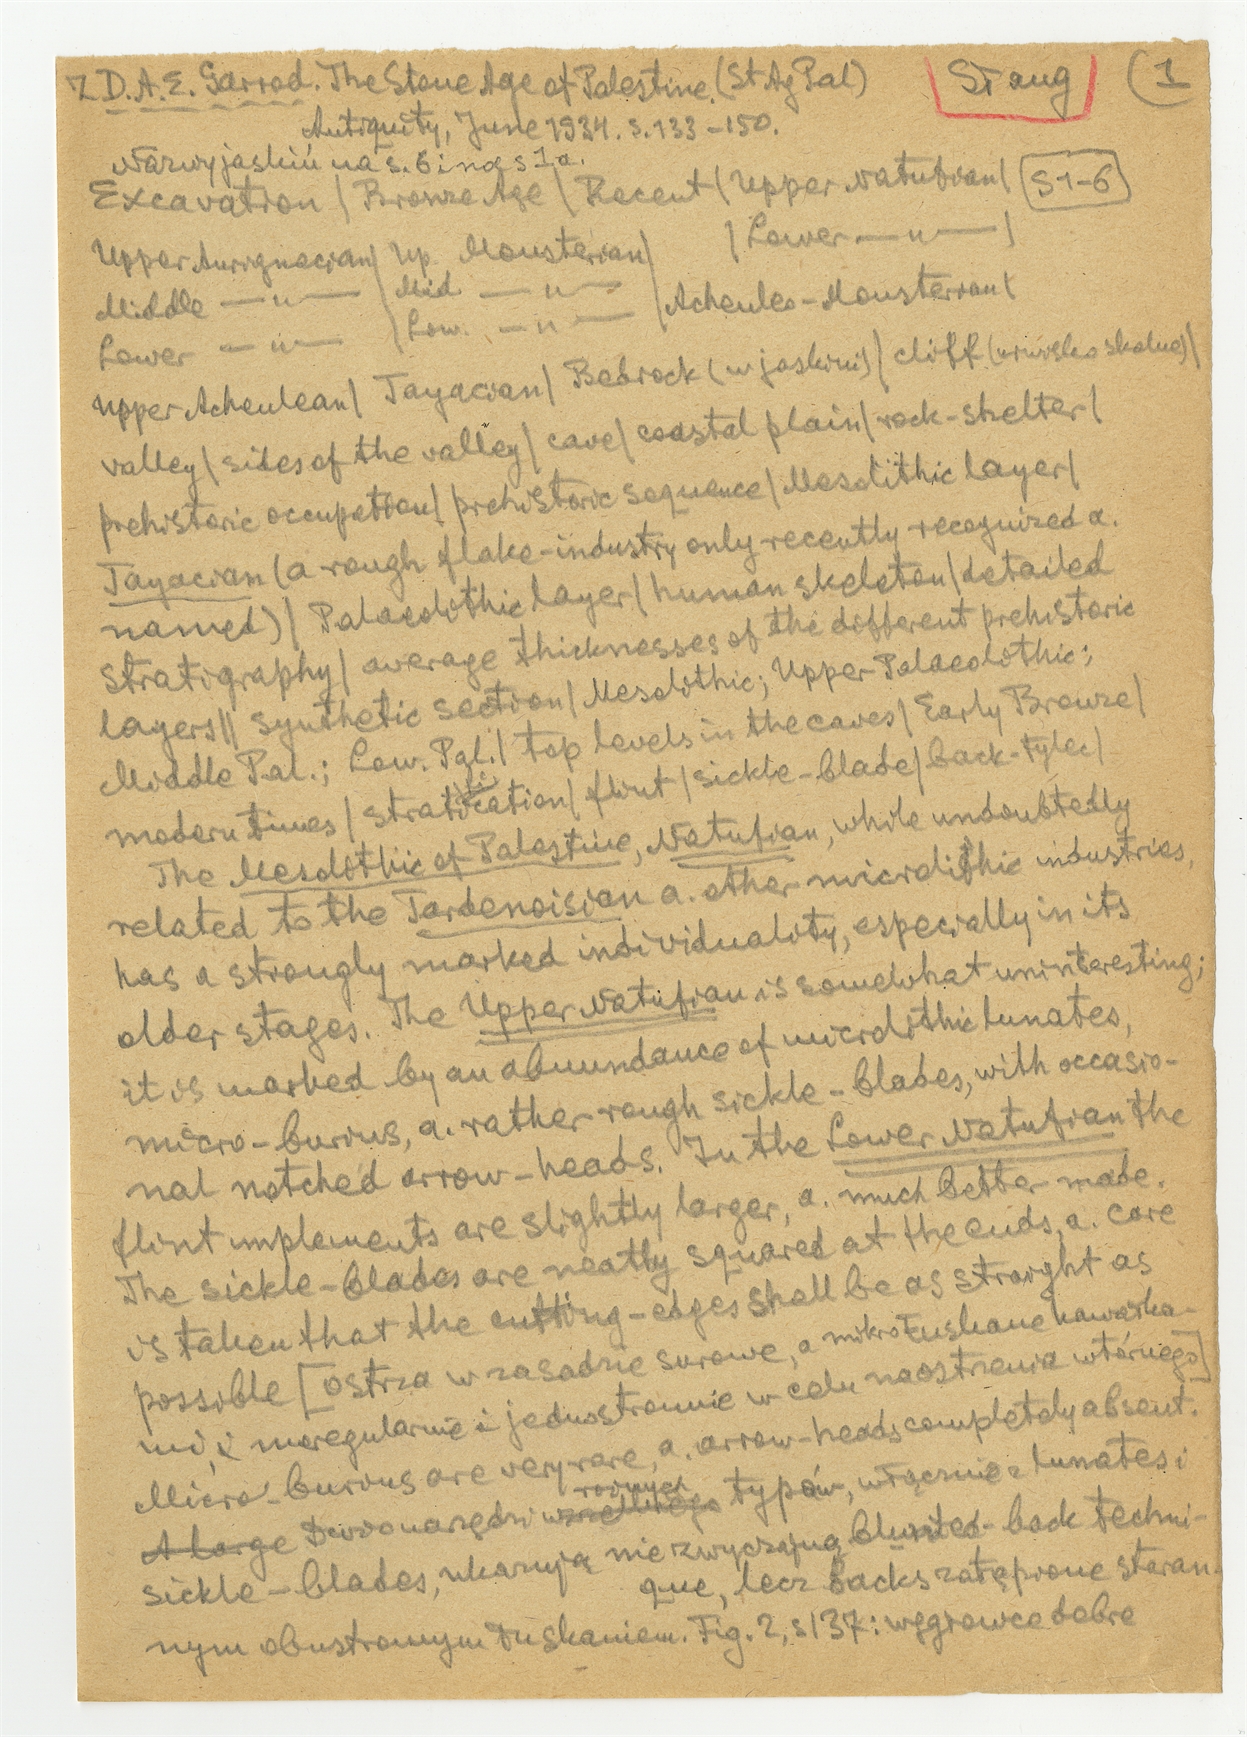 Z D. A. E. Garrod. The Stone Age of Palestine. (St Ag Pal) St ang (1
Antiquity, June 1934. s. 133–150.
Nazwy jaskiń na s. 6 i na s 1a.
Excavation | Bronze Age | Recent | Upper Natufian | S 1-6
Upper Aurignacian | Up. Mousterian | | Lower —"— |
Middle —"— | Mid. —"— | Acheuleo-Mousterian |
Lower —"— | Low. —"—
Upper Acheulean | Tayacian | Bedrock (w jaskini) | cliff (urwisko skalne) |
valley | sides of the valley | cave | coastal plain | rock-shelter |
prehistoric occupation | prehistoric sequence | Mesolithic layer |
Tayacian (a rough flake-industry only recently recognized a.
named) | Palaeolithic layer | human skeleton | detailed
stratigraphy | average thicknesses of the different prehistoric
layers || synthetic section | Mesolithic; Upper Palaeolithic;
Middle Pal.; Low. Pal. | top levels in the caves | Early Bronze |
modern times | stratification | flint | sickle-blade | back-tyłec |
The Mesolithic of Palestine, Natufian, while undoubtedly
related to the Tardenoisian a. other microlithic industries,
has a strongly marked individuality, especially in its
older stages. The Upper Natufian is somewhat uninteresting;
it is marked by an abuundance of microlithic lunates,
micro-burins, a. rather rough sickle-blades, with occasio-
nal notched arrow-heads. In the Lower Natufian the
flint implements are slightly larger, a. much better made.
The sickle-blades are neatly squared at the ends, a. care
is taken that the cutting-edges shall be as straight as
possible [ostrza w zasadzie surowe, a mikrołuskane kawałka-
mi, i nieregularnie i jednostronnie w celu naostrzenia wtórnego]
Micro-burins are very rare, a. arrow-heads completely absent.
A large Dużo narzędzi różnych typów, włącznie z lunates i
sickle-blades, ukazują niezwyczajną blunted-back techni-
que, lecz backs zatępione staran-
nym obustronnym łuskaniem. Fig. 2, s 137: węgrowce dobre